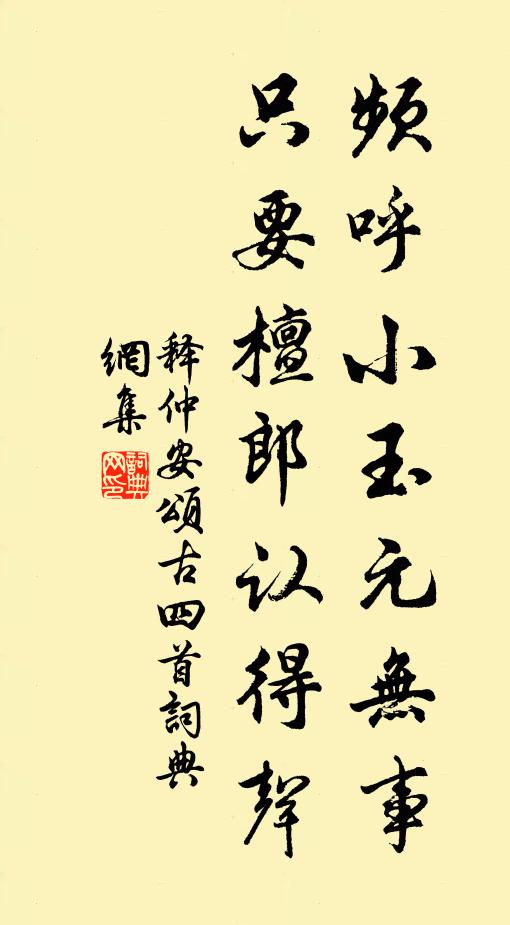 频呼小玉元無事
只要檀郎认得聲
释仲安頌古四首詞典
網集
詞典网印